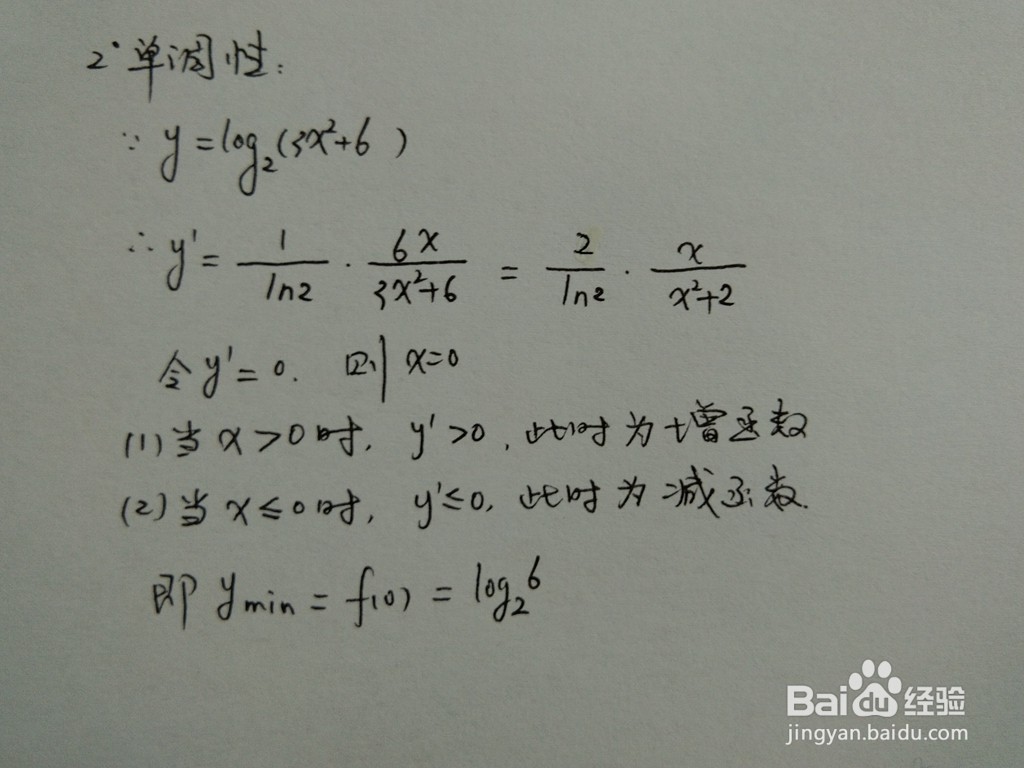 2° 单调性:
∵ y = log₂(3x²+6)
∴ y' = 1/ln2 · 6x/(3x²+6) = 2/ln2 · x/(x²+2)
令 y' = 0. 则 x=0
(1) 当 x > 0 时, y' > 0 , 此时为增函数
(2) 当 x ≤ 0 时, y' ≤ 0, 此时为减函数.
即 y min = f(0) = log₂6
Bai 经验
jingyan.baidu.com